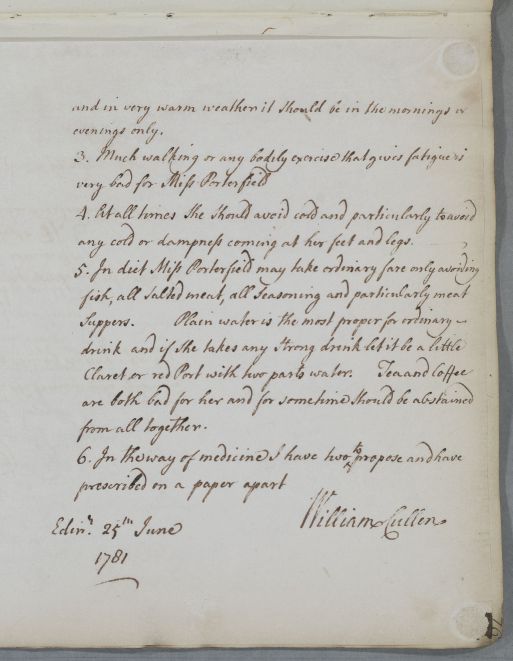 and in very warm weather it should be in the mornings or
evenings only.
3. Much walking or any bodily exercise that gives fatigue is
very bad for Miss Porterfield
4. At all times she should avoid cold and particularly to avoid
any cold or dampness coming at her feet and legs.
5. In diet Miss Porterfield may take ordinary fare only avoiding
fish, all salted meat, all seasoning and particularly meat
suppers. Plain water is the most proper for ordinary
drink and if she takes any strong drink let it be a little
Claret or red Port with two parts water. Tea and Coffee
are both bad for her and for sometime should be abstained
from all together.
6. In the way of medicine I have two to propose and have
prescribed on a paper apart
William Cullen
Edinr. 25th June
1781